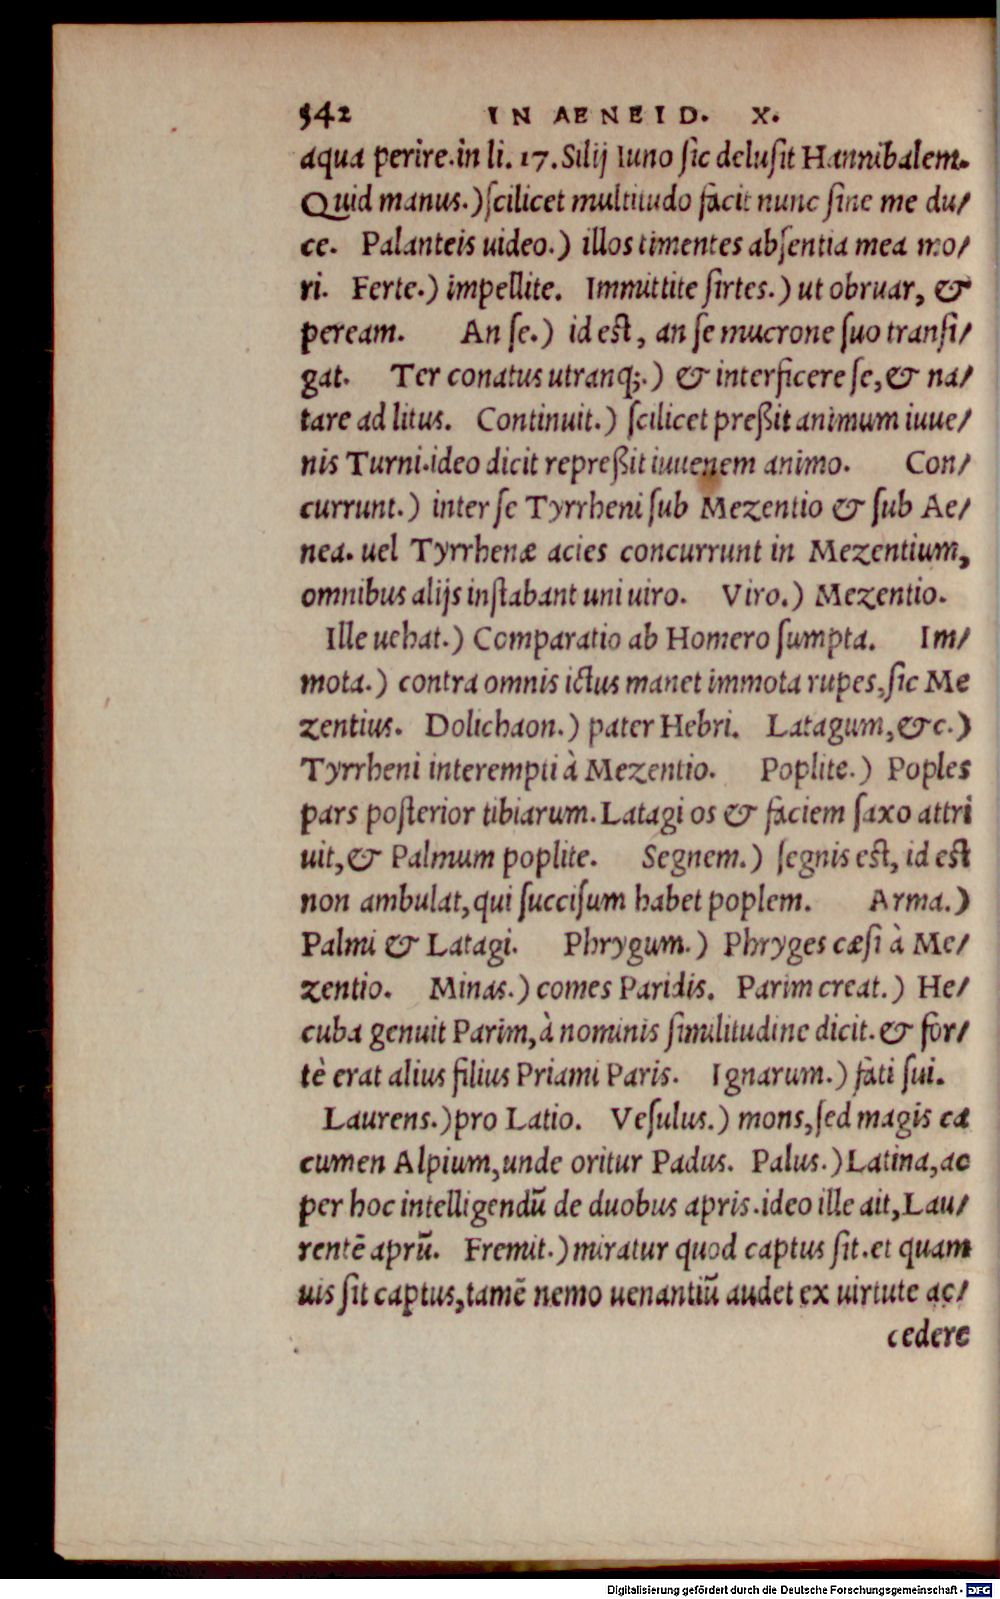 542 IN AENEID. X.
aqua perire.in li. 17. Silij Iuno ſic deluſit Hannibalem.
Quid manus.)ſcilicet multitudo facit nunc ſine me du/
ce. Palanteis uideo.) illos timentes abſentia mea mo/
ri. Ferte.) impellite. Immittite ſirtes.) ut obruar, &
peream. An ſe.) id eſt, an ſe mucrone ſuo tranſi/
gat. Ter conatus utranq;.) & interficere ſe,& na/
tare ad litus. Continuit.) ſcilicet preßit animum iuue/
nis Turni.ideo dicit repreßit iuuenem animo. Con/
currunt.) inter ſe Tyrrheni ſub Mezentio & ſub Ae/
nea. uel Tyrrhenæ acies concurrunt in Mezentium,
omnibus alijs inſtabant uni uiro. Viro.) Mezentio.
Ille uehat.) Comparatio ab Homero ſumpta. Im/
mota.) contra omnis ictus manet immota rupes,ſic Me
zentius. Dolichaon.) pater Hebri. Latagum,&c.)
Tyrrheni interempti à Mezentio. Poplite.) Poples
pars poſterior tibiarum. Latagi os & faciem ſaxo attri
uit,& Palmum poplite. Segnem.) ſegnis eſt, id eſt
non ambulat,qui ſucciſum habet poplem. Arma.)
Palmi & Latagi. Phrygum.) Phryges cæſi à Me/
zentio. Minas.) comes Paridis. Parim creat.) He/
cuba genuit Parim,à nominis ſimilitudine dicit.& for/
tè erat alius filius Priami Paris. Ignarum.) fati ſui.
Laurens.)pro Latio. Veſulus.) mons,ſed magis ca
cumen Alpium,unde oritur Padus. Palus.)Latina,ac
per hoc intelligendū de duobus apris.ideo ille ait,Lau/
rentē aprū. Fremit.)miratur quod captus ſit.et quam
uis ſit captus,tamē nemo uenantiū audet ex uirtute ac/
cedere
Digitalisierung gefördert durch die Deutsche Forschungsgemeinschaft - DFG